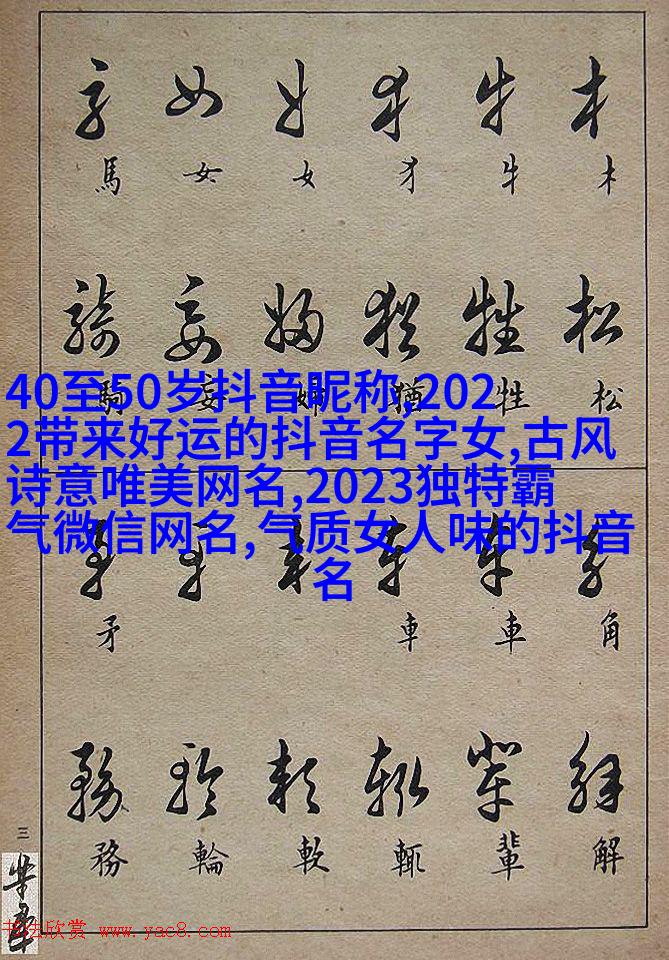 木 牛 犭 女 女 馬
松 牲 猶 婦 妄 騎
40至50岁抖音昵称,202
2带来好运的抖音名字女,古风
诗意唯美网名,2023独特霸
气微信网名,气质女人味的抖音
名
角 車 車 矛
解 輩 輒 軟 輪 務
三
书法欣赏 www.yac8.com